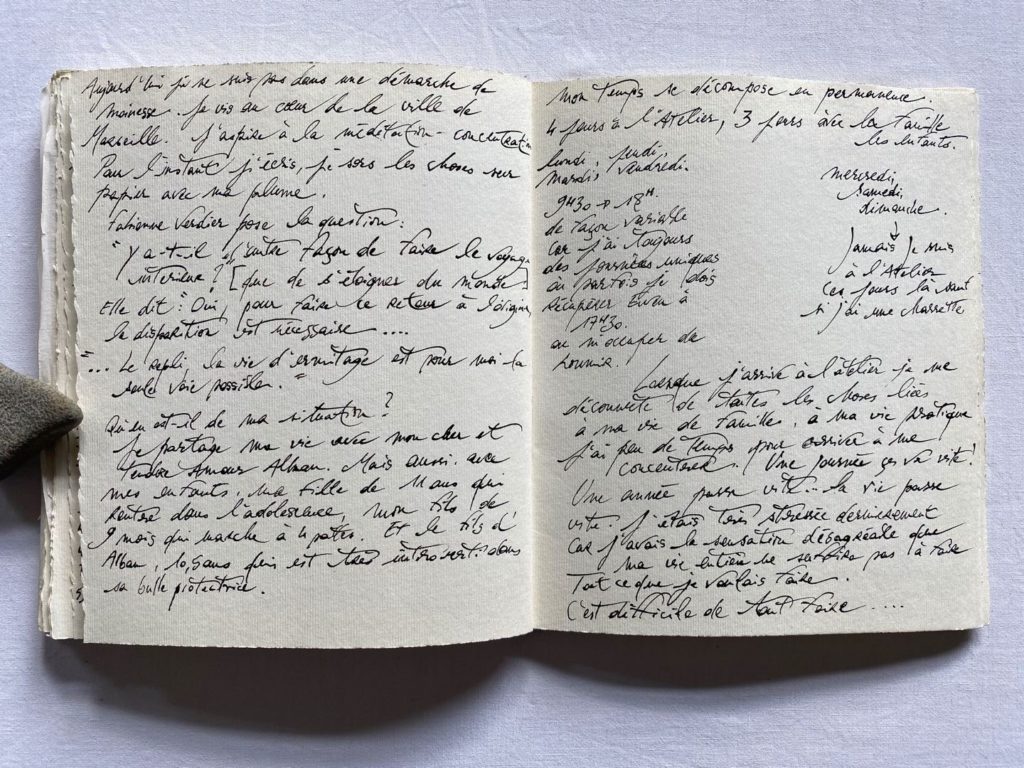 Aujourd'hui je ne suis pas dans une démarche de
moinesse. Je vis au cœur de la ville de
Marseille. J'aspire à la méditation-concentration
Pour l'instant j'écris, je sors les choses sur
papier avec ma plume.
Fabienne Verdier pose la question:
"Y a-t-il d'autre façon de faire le voyage
intérieur? [que de s'éloigner du monde]
Elle dit: "Oui, pour faire le retour à l'origine
la disparition est nécessaire ....
"... Le repli, la vie d'ermitage est pour moi la
seule voie possible."
Qu'en est-il de ma situation?
Je partage ma vie avec mon cher et
tendre Amour Alban. Mais aussi avec
mes enfants, ma fille de 11 ans qui
rentre dans l'adolescence, mon fils de
9 mois qui marche à 4 pattes. Et le fils d'
Alban, 10,5ans qui est très introverti dans
sa bulle protectrice.
mon temps se décompose en permanence.
4 jours à l'Atelier, 3 jours avec la famille
les enfants.
lundi, jeudi,
mardi, vendredi.
9H30 → 18H
de façon variable
car j'ai toujours
des journées uniques
où parfois je dois
récupérer Swan à
17H30.
ou m'occuper de
mercredi,
samedi,
dimanche.
↓
Jamais je suis
à l'Atelier
ces jours là sauf
si j'ai une
Lorsque j'arrive à l'atelier je me
déconnecte de toutes les choses liées
a ma vie de familles, à ma vie pratique
J'ai peu de temps pour arriver à me
concentrer. Une journée ça va vite!
Une année passe vite... la vie passe
vite. J'étais très stressée dernièrement
car j'avais la sensation désagréable que
ma vie entière ne suffise pas à faire
Tout ce que je voulais faire.
C'est difficile de tout faire ....